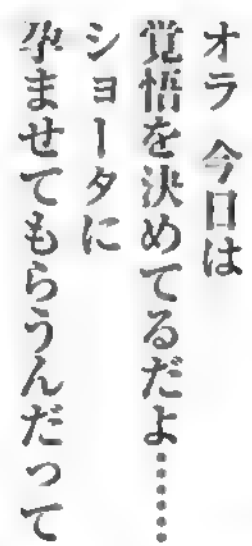 オラ 今日は
覚悟を決めてるだよ……
ショータに
孕ませてもらうんだって